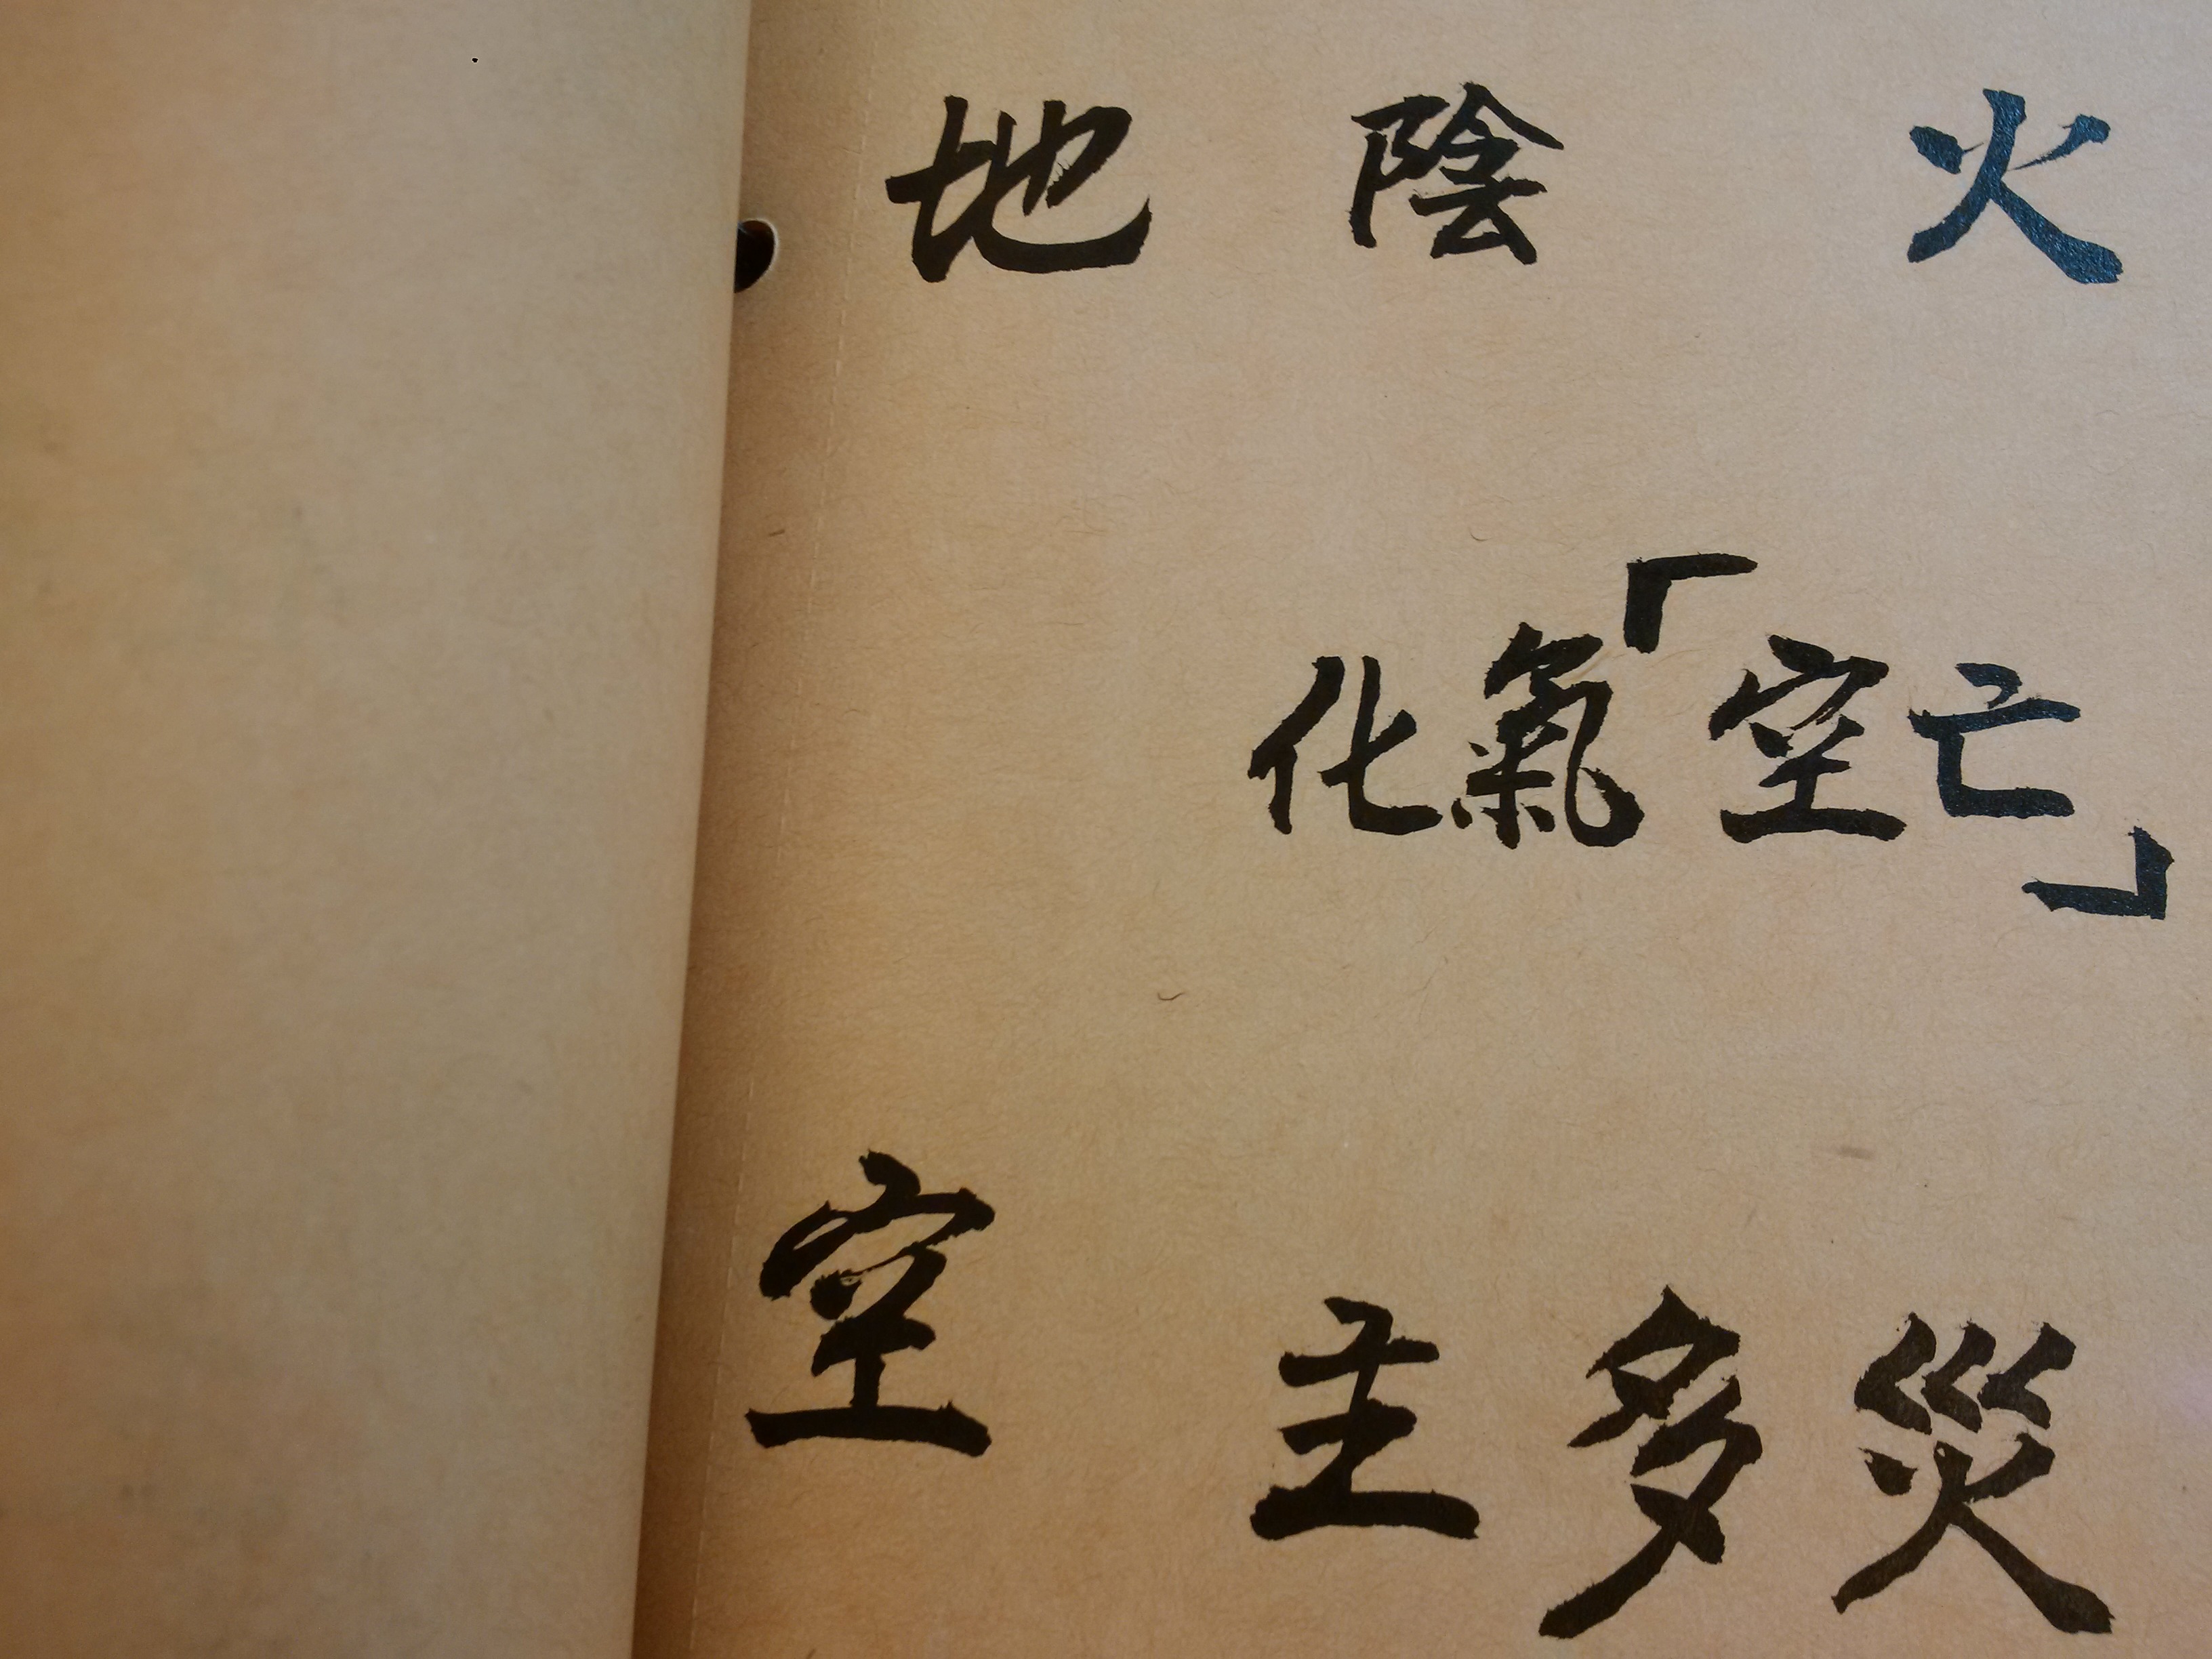 地 陰 火
化氣「空亡」
空 主多災